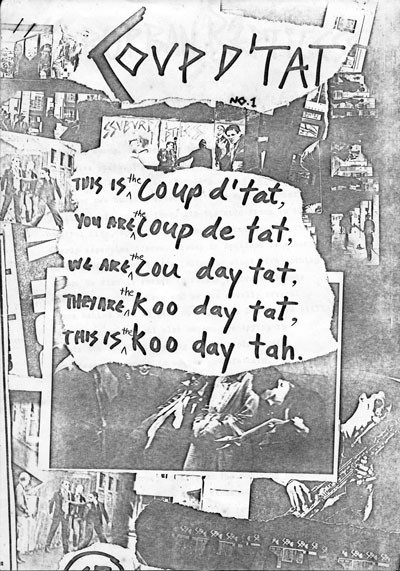 11
COUP D'TAT
NO. 1
THIS IS the COUP d'tat,
YOU ARE the COUP de tat,
WE ARE the COU day tat,
THEY ARE the KOO day tat,
THIS IS the KOO day tah.